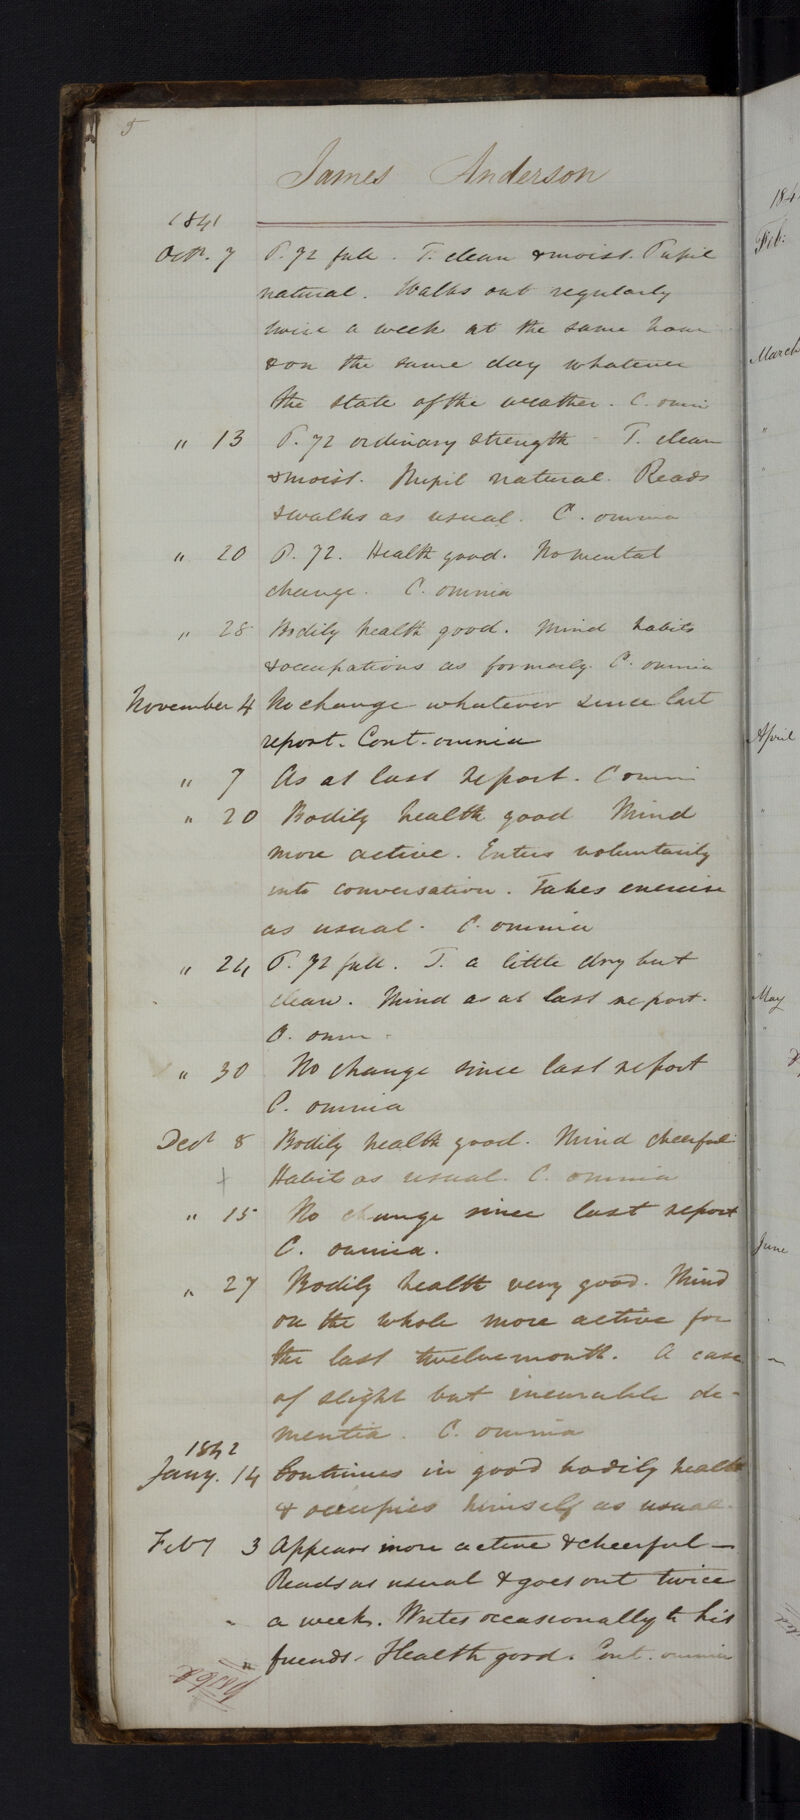 5
James Anderson
1841
Octr. 7 P. 72 full. T. clean & moist. Pupil
natural. Walks out regularly
twice a week at the same hour
& on the same day whatever
the state of the weather. C. omni
" 13 P. 72 ordinary strength - T. clean
& moist. Pupil natural. Reads
& walks as usual. C. omnia
" 20 P. 72. Health good. No mental
change. C. omnia
" 28 Bodily health good. Mind habits
& occupations as formerly. C. omnia
November 4 No change whatever since last
report. Cont. omnia
" 7 As at last report. C omni
" 20 Bodily health good Mind
more active. Enters voluntarily
into conversation. Takes exercise
as usual. C. omnia
" 24 P. 72 full. T. a little dry but
clean. Mind as at last report.
C. omn.
" 30 No change since last report
C. omnia
Decr 8 Bodily health good. Mind cheerful
+ Habits as usual. C. omnia
" 15 No change since last report
C. omnia.
" 27 Bodily health very good. Mind
on the whole more active for
the last twelvemonth. A case
of slight but incurable de-
mentia. C. omnia
1842
Jany. 14 Continues in good bodily health
& occupies himself as usual.
Feby 3 Appears more active & cheerful —
Reads as usual & goes out twice
a week. Writes occasionally to his
friends. Health good. Cont. omnia
184
Feb:
March
"
April
May
"
June